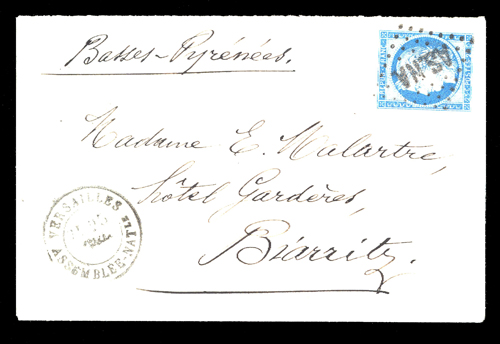 Basses-Pyrénées.
Madame E. Malartre,
hôtel Gardères,
Biarritz.
VERSAILLES
ASSEMBLEE-NATLE